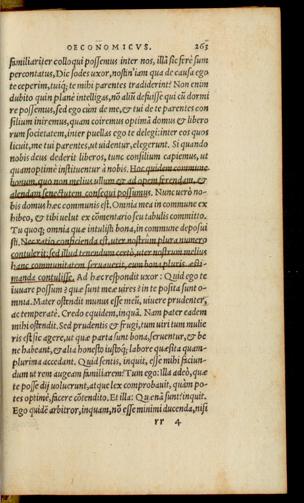 OECONOMICVS. 263
familiariter colloqui possemus inter nos, illā sic ferè sum
percontatus, Dic sodes uxor, nostin'iam qua de causa ego
te ceperim, tuiq; te mihi parentes tradiderint? Non enim
dubito quin planè intelligas, nō aliū defuisse quī cū dormi
re possemus, sed ego cùm de me, & tui de te parentes con
silium iniremus, quam coiremus optimā domus & libero
rum societatem, inter puellas ego te delegi: inter eos quos
licuit, me tui parentes, ut uidentur, elegerunt. Si quando
nobis deus dederit liberos, tunc consilium capiemus, ut
quamoptimè instituantur à nobis. Hoc quidem commune
bonum, quo non melius ullum & ad opem ferendam, &
alendam senectutem consequi possumus. Nunc uerò no=
bis domus hæc communis est. Omnia mea in commune ex
hibeo, & tibi uelut ex cōmentario seu tabulis committo.
Tu quoq; omnia quæ intulisti bona, in commune deposui
sti. Nec ratio conficienda est, uter nostrûm plura numero
contulerit: sed illud tenendum certò, uter nostrûm melius
hanc communitatem seruauerit, eum bona pluris æsti=
manda contulisse. Ad hæc respondit uxor: Quid ego te
iuuare possum? quæ sunt meæ uires? in te posita sunt o=
mnia. Mater ostendit munus esse meū, uiuere prudenter,
ac temperatè. Credo equidem, inquā. Nam pater eadem
mihi ostendit. Sed prudentis & frugi, tum uiri tum mulie
ris est sic agere, ut quæ parta sunt bona, seruentur, & be
ne habeant, & alia honesto iustoq; labore quæsita quàm=
plurima accedant. Quid sentis, inquit, esse mihi faciun=
dum ut rem augeam familiarem? Tum ego: illa adeò, quæ
te posse dij uoluerunt, atque lex comprobauit, quàm po=
tes optimè, facere cōtendito. Et illa: Quænā sunt? inquit.
Ego quidē arbitror, inquam, nō esse minimi ducenda, nisi
rr 4